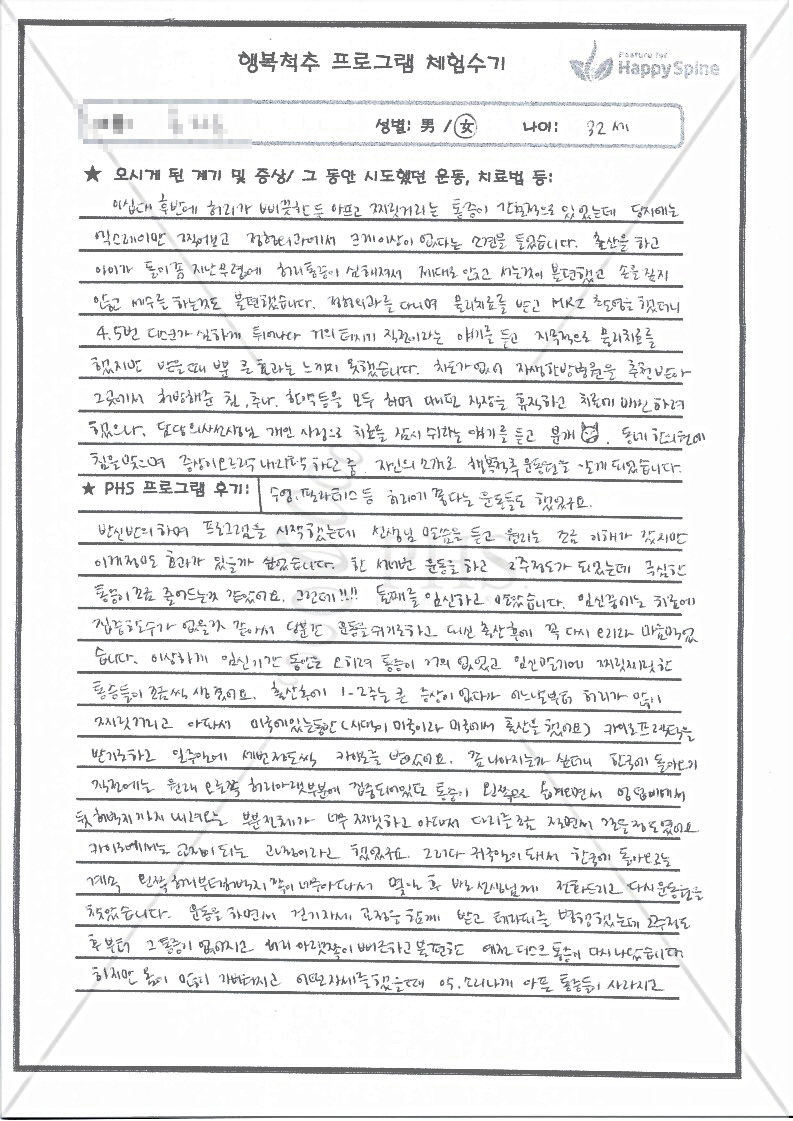 행복척추 프로그램 체험수기
Posture for
HappySpine
성별: 男 / 女 나이: 32 세
★ 오시게 된 계기 및 증상/ 그 동안 시도했던 운동, 치료법 등:
이십대 후반에 허리가 삐끗한 듯 아프고 찌릿거리는 통증이 간헐적으로 있었는데 당시에는
엑스레이만 찍어보고 정형외과에서 크게 이상이 없다는 소견을 들었습니다. 출산을 하고
아이가 돌이쯤 지난무렵에 허리통증이 심해져서 제대로 앉고 서는것이 불편했고 손을 짚지
않고 세수를 하는것도 불편했습니다. 정형외과를 다니며 물리치료를 받고 MRI 촬영을 했더니
4.5번 디스크가 심하게 튀어나와 거의 터지기 직전이라는 얘기를 듣고 지속적으로 물리치료를
했지만 받을때 뿐 큰 효과는 느끼지 못했습니다. 차도가 없어 자생한방병원을 추천받아
그곳에서 처방해준 침, 추나, 한약등을 모두 하며 다니던 직장을 휴직하고 치료에 매진하려
했으나, 담당의사선생님 개인 사정으로 치료를 잠시 쉬라는 얘기를 듣고 분개 . 동네 한의원에
침을맞으며 증상이오르락 내리락 하던 중, 지인의 소개로 행복척추 운동센터를 알게 되었습니다.
★ PHS 프로그램 후기: 수영, 필라테스 등 허리에 좋다는 운동들도 했었구요.
반신반의하며 프로그램을 시작했는데 선생님 말씀을 듣고 원리는 조금 이해가 갔지만
이게정말로 효과가 있을까 싶었습니다. 한 세네번 운동을 하고 2주정도가 되었는데 극심한
통증이 조금 줄어드는것 같았어요. 그런데!!! 둘째를 임신하고 말았습니다. 임신중에는 치료에
집중할수가 없을것 같아서 당분간 운동을쉬기로하고 대신 출산후에 꼭 다시 오리라 마음먹었
습니다. 이상하게 임신기간 동안은 오히려 통증이 거의 없었고 임신말기에 찌릿찌릿한
통증들이 조금씩 생겼어요. 출산후에 1-2주는 큰 증상이 없다가 어느날부터 허리가 많이
찌릿거리고 아파서 미국에있는동안 (시댁이 미국이라 미국에서 출산을 했어요) 카이로프랙틱을
받기로하고 일주일에 세번정도씩 카이로를 받았어요. 좀 나아지는가 싶더니 한국에 돌아오기
직전에는 원래 오른쪽 허리아랫부분에 집중되어있던 통증이 왼쪽으로 옮겨오면서 엉덩이에서
뒷허벅지까지 내려오는 부분전체가 너무 찌릿하고 아파서 다리를 절면서 걸을정도였어요
카이로에서는 교정이 되는 과정이라고 했었구요. 그러다 귀국일이 돼서 한국에 돌아오고는
계속 왼쪽허리부터허벅지 쪽이 너무아파서 몇일 후 바로 선생님께 전화드리고 다시 운동센터를
찾았습니다. 운동을 하면서 걷기자세 교정을 함께 받고 테라피를 병행했는데 2주정도
후부터 그통증이 없어지고 허리 아랫쪽이 뻐근하고 불편한 예전 디스크 통증이 다시나왔습니다.
하지만 몸이 많이 가벼워지고 어떤자세를 했을때 악, 소리나게 아픈 통증들이 사라지고